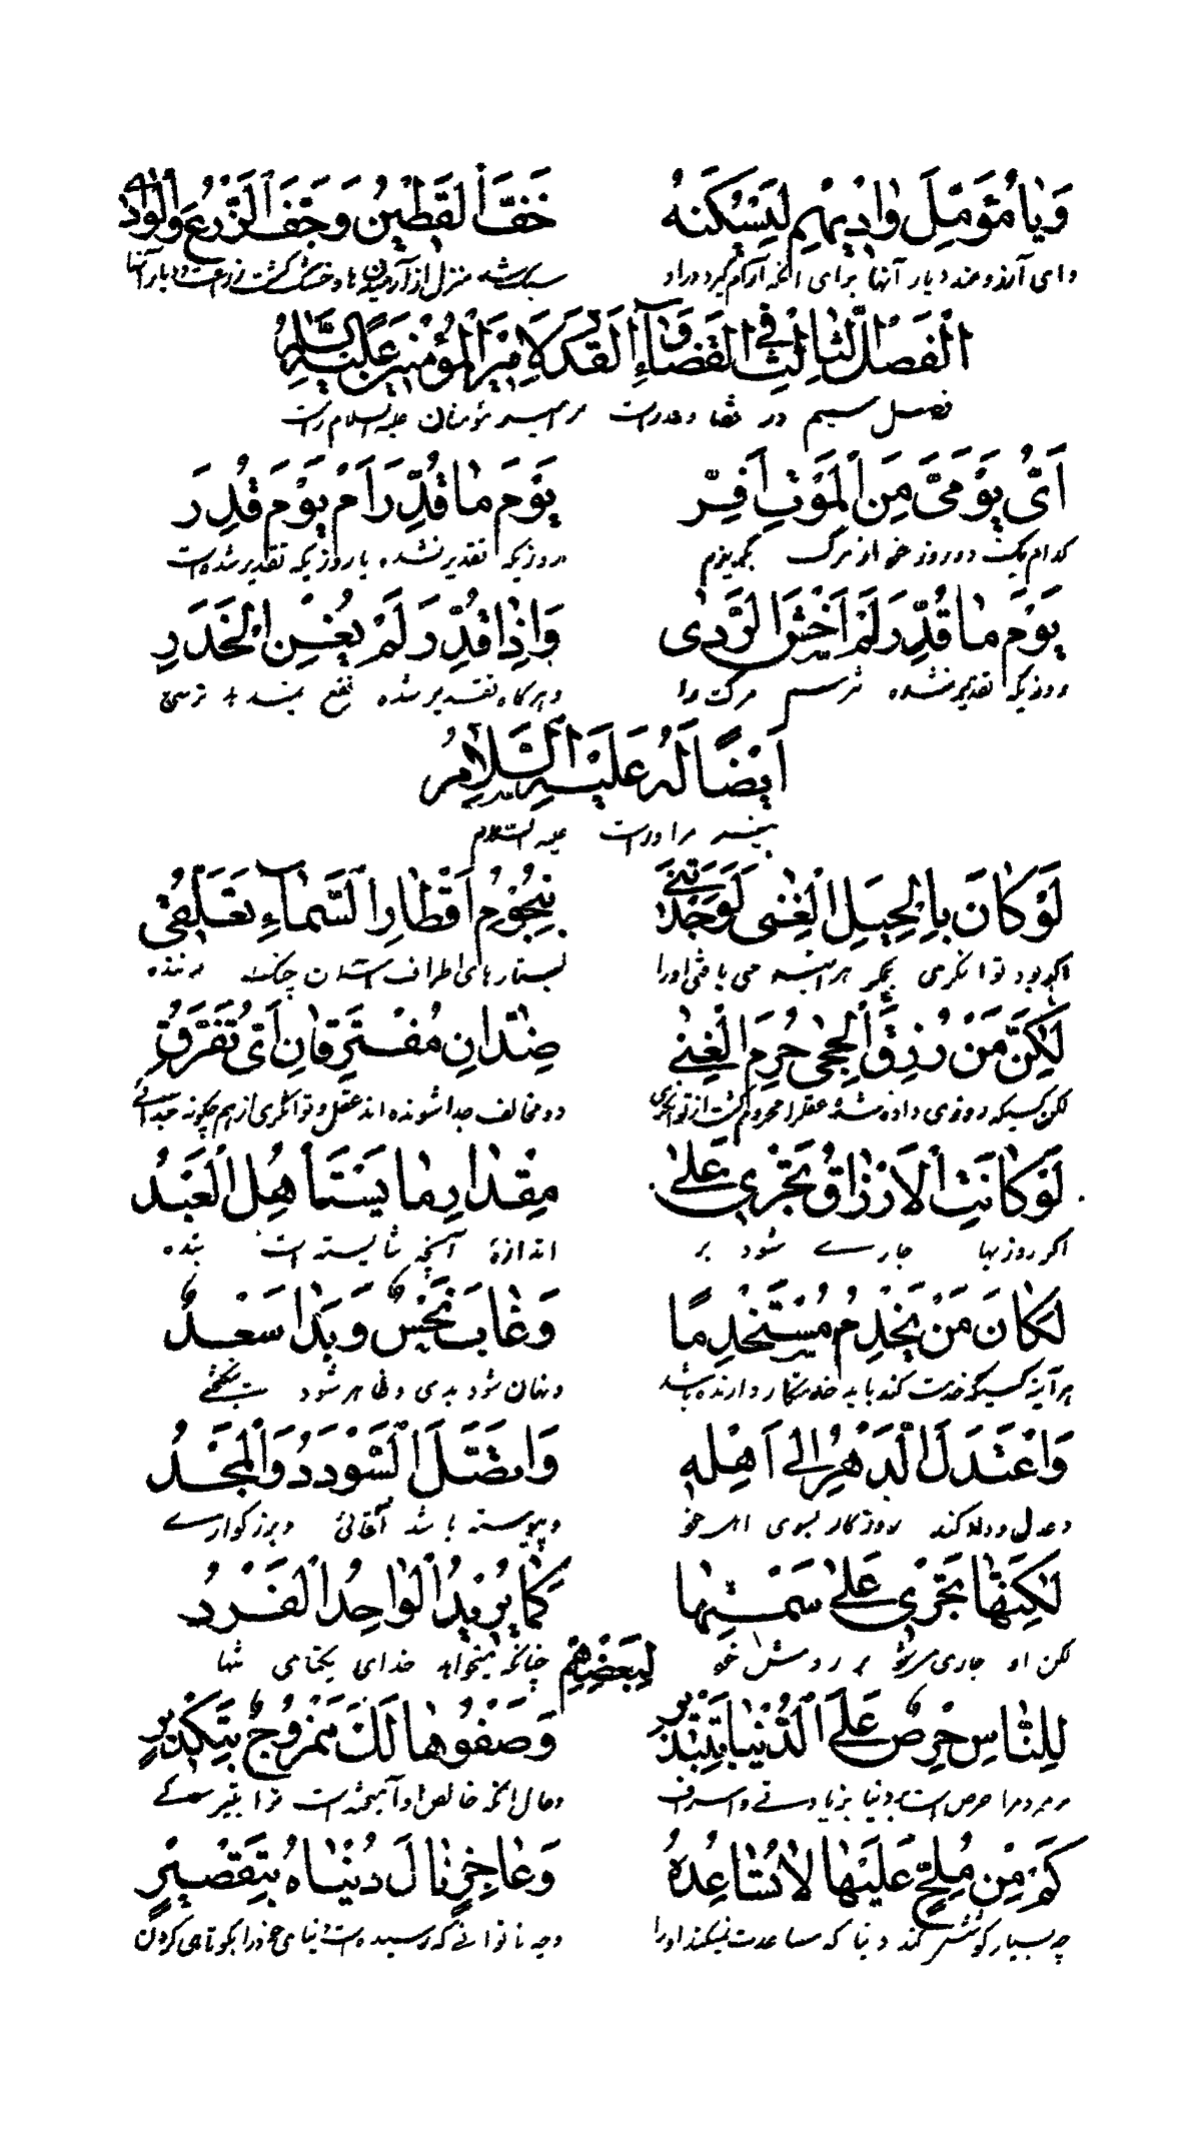 وَيَا مُؤَمِّلَ وَادِيهِمِ لِيَسْكُنَهُ خَفَّ الْقَطِينُ وَجَفَّ الزَّرْعُ وَالْوَادِ
وای آرزومند دیار آنها برای آنکه آرام گیرد در او سبک شد منزل از آرمیدن ها و خشک گشت زراعت و دیار آنها
اَلْفَصْلُ الثَّالِثُ فِي الْقَضَاءِ وَالْقَدَرِ لِاَمِيرِ الْمُؤْمِنِينَ عَلَيْهِ السَّلَامُ
فصل سیم در قضا و قدر است مر امیر مؤمنان علیه السلام راست
اَيُّ يَوْمَيَّ مِنَ الْمَوْتِ اَفِرّ يَوْمَ مَا قُدِّرَ اَمْ يَوْمَ قُدِرَ
کدام یک دو روز خود از مرگ بگریزم روزیکه تقدیر نشده یا روزیکه تقدیر شده است
يَوْمَ مَا قُدِّرَ لَمْ اَخْشَ الرَّدَى وَاِذَا قُدِّرَ لَمْ يُغْنِ الْحَذَرِ
روزیکه تقدیر نشده نترسم مرگ را و هرگاه تقدیر شده نفع ترس
اَيْضًا لَهُ عَلَيْهِ السَّلَامُ
مر او راست علیه السلام
لَوْ كَانَ بِالْحِيَلِ الْغِنَى لَوَجَدْتَنِي بِنُجُومِ اَقْطَارِ السَّمَاءِ تَعَلُّقِي
اگر بود توانگری بمکر هر آینه می یافتی او را بستارهای اطراف آسمان چنگ زننده
لَكِنَّ مَنْ رُزِقَ الْحِجَى حُرِمَ الْغِنَى ضِدَّانِ مُفْتَرِقَانِ اَيَّ تَفَرُّقٍ
لکن کسیکه روزی داده شد عقل را محروم گشت از توانگری دو مخالف جدا شونده اند عقل و توانگری از هم چگونه جدائی
لَوْ كَانَتِ الْاَرْزَاقُ تَجْرِي عَلَى مِقْدَارِ مَا يَسْتَاْهِلُ الْعَبْدُ
اگر روزیها جاری شود بر اندازهٔ آنچه شایسته است بنده
لَكَانَ مَنْ يُخْدَمُ مُسْتَخْدِمًا وَغَابَ نَحْسٌ وَبَدَا سَعْدٌ
هر آینه کسیکه خدمت کند یا به خدمتکار دارنده باشد و نهان شود بدی و ظاهر شود نیکبختی
وَاعْتَدَلَ الدَّهْرُ اِلَى اَهْلِهِ وَاتَّصَلَ السُّودَدُ وَالْمَجْدُ
و عدل و داد کند روزگار بسوی اهل خود و پیوسته باشد آقائی و بزرگواری
لَكِنَّهَا تَجْرِي عَلَى سَمْتِهَا كَمَا يُرِيدُ الْوَاحِدُ الْفَرْدُ
لکن او جاری میشود بر روش خود چنانکه میخواهد خدای یکتای تنها
لِبَعْضِهِمْ
لِلنَّاسِ حِرْصٌ عَلَى الدُّنْيَا بِتَبْذِيرٍ وَصَفْوُهَا لَكَ مَمْزُوجٌ بِتَكْدِيرٍ
مر مردم را حرص است بدنیا بزیادتی و اسراف و حال آنکه خالص او آمیخته است ترا بتیرگی
كَمْ مِنْ مُلِحٍّ عَلَيْهَا لَا تُسَاعِدُهُ وَعَاجِزٍ نَالَ دُنْيَاهُ بِتَقْصِيرٍ
چه بسیار کوشش کند دنیا که مساعدت نمیکند او را و چه ناتوانی که رسیده است دنیای خود را بکوتاهی کردن